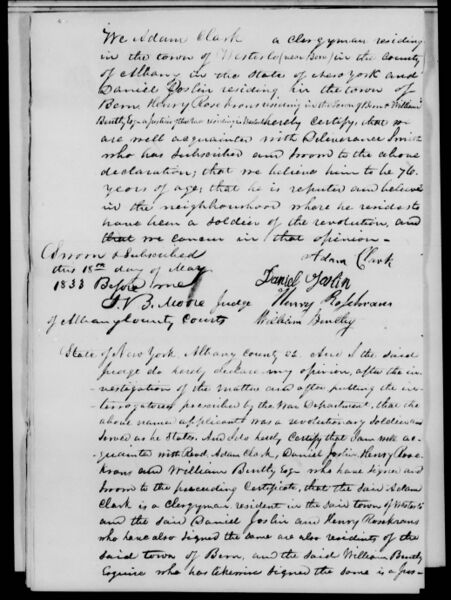 We Adam Clark a Clergyman residing
in the town of Westerlo (near Bern) in the County
of Albany in the State of New York and
Daniel Joslin residing in the town of
Bern Henry Rosekrans residing in the town of Bern & William
Bently Esq a Justice of the peace residing in hereby certify, that we
are well acquainted with Deliverance Smith
who has subscribed and sworn to the above
declaration; that we believe him to be 76
years of age; that he is reputed and believed
in the neighbourhood where he resides to
have been a soldier of the revolution, and
that we concur in that opinion—
Sworn & Subscribed
this 18th day of May
1833 Before me
J. B. Moore Judge
of Albany County Courts
Adam Clark
Daniel Joslin
Henry Rosekrans
William Bently
State of New York, Albany County ss. And I the said
judge do hereby declare my opinion, after the in-
-vestigation of the matter and after putting the in-
-terrogatories prescribed by the War Department, that the
above named applicant was a revolutionary Soldier and
served as he states. And I do hereby Certify that I am well ac-
quainted with Revd. Adam Clark, Daniel Joslin Henry Rose-
krans and William Bently Esqr who have signed and
sworn to the preceeding Certificate, that the said Adam
Clark is a Clergyman resident in the said town of Westerlo
and the said Daniel Joslin and Henry Rosekrans
who have also signed the same are also residents of the
said town of Bern, and the said William Bently
Esquire who has likewise signed the same is a Jus-